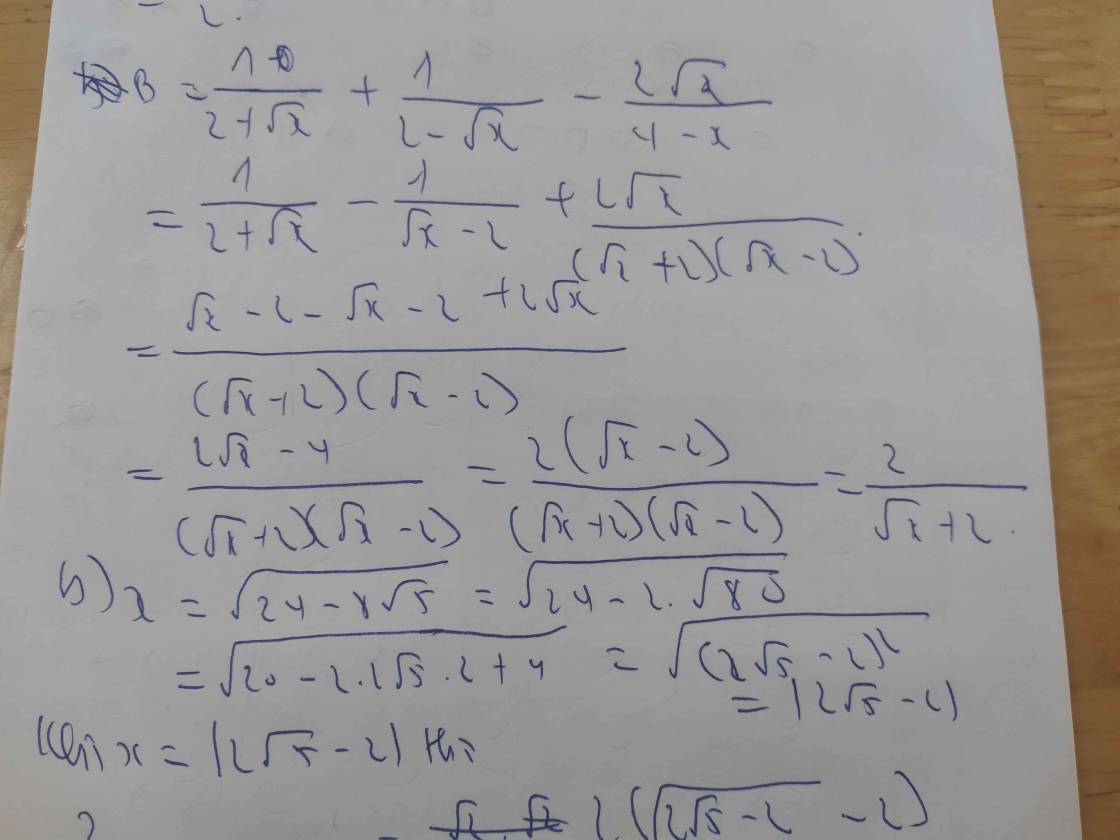 = 2.
B = 1/(2+√x) + 1/(2-√x) - 2√x/(4-x)
= 1/(2+√x) - 1/(√x-2) + 2√x/((√x+2)(√x-2))
= (√x-2-√x-2+2√x)/((√x+2)(√x-2))
= (2√x-4)/((√x+2)(√x-2)) = 2(√x-2)/((√x+2)(√x-2)) = 2/(√x+2).
b) x = √(24-8√5) = √(24-2.√80)
= √(20-2.2√5.2+4) = √((2√5-2)²)
= |2√5-2|
Khi x = |2√5-2| thì
2 = 2(√(2√5-2) -2)